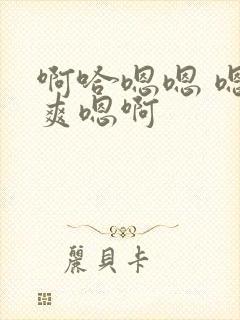 啊哈嗯嗯 嗯
爽嗯啊
麗貝卡